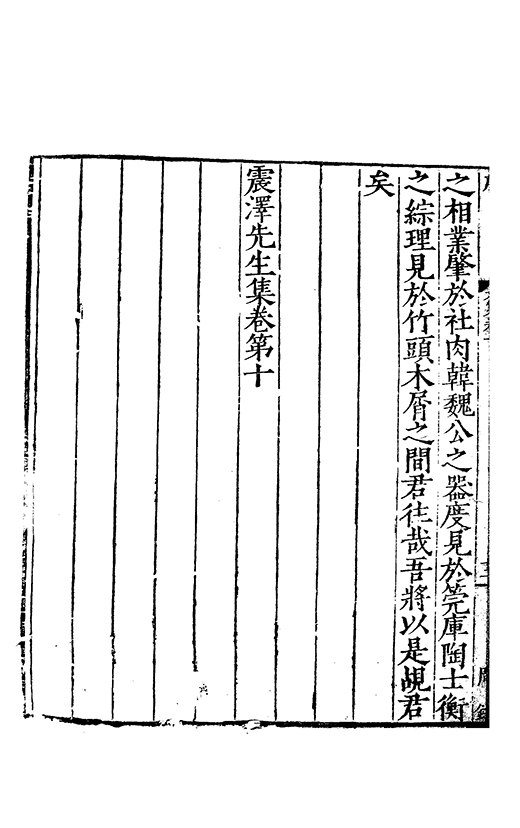 之相業肇於社肉韓魏公之器度見於筦庫陶士衡
之綜理見於竹頭木屑之間君往哉吾將以是覘君
矣
震澤先生集卷第十